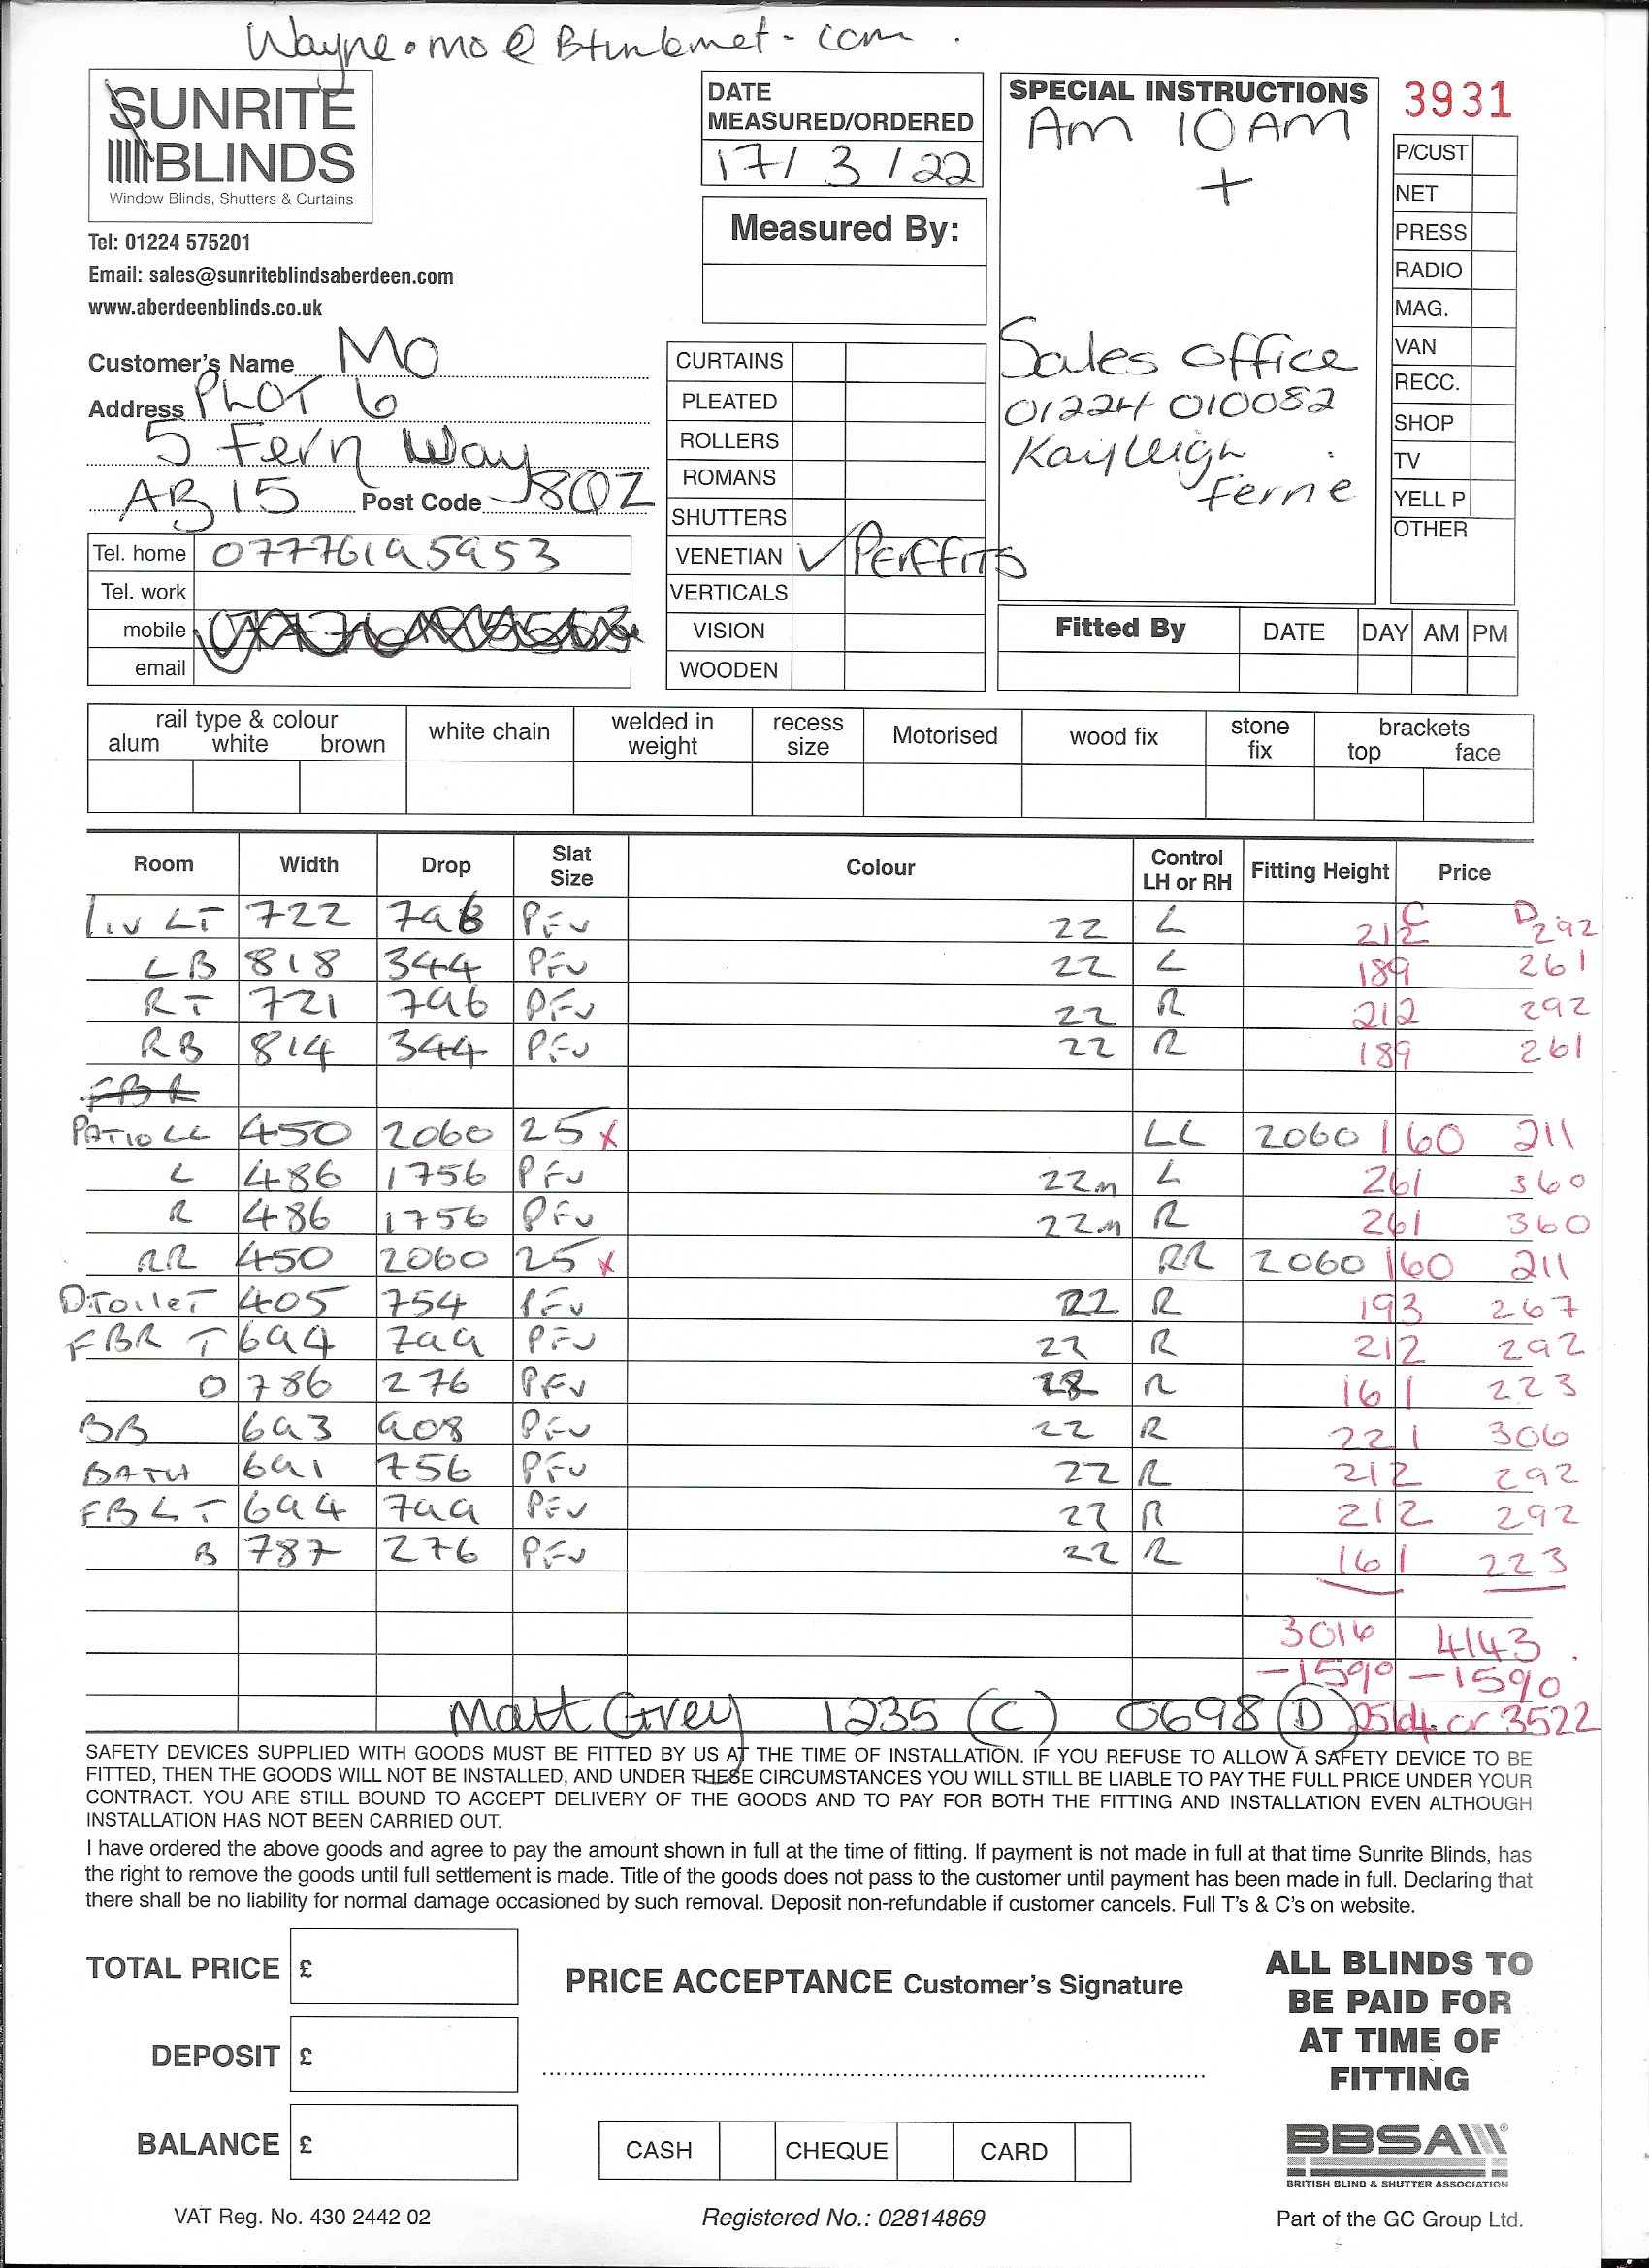 Wayne.mo@Btinternet.com.
SUNRITE
BLINDS
Window Blinds, Shutters & Curtains
Tel: 01224 575201
Email: sales@sunriteblindsaberdeen.com
www.aberdeenblinds.co.uk
DATE
MEASURED/ORDERED
17/ 3 / 22
Measured By:
SPECIAL INSTRUCTIONS
Am 10 AM
+
Sales office
01224 010082
Kayleigh
Ferne
3931
P/CUST
NET
PRESS
RADIO
MAG.
VAN
RECC.
SHOP
TV
YELL P
OTHER
Customer's Name MO
Address PLOT 6
5 Fern Way
AB15 Post Code 8QZ
Tel. home 07776195953
Tel. work
mobile
email
CURTAINS
PLEATED
ROLLERS
ROMANS
SHUTTERS
VENETIAN ✓ Perffits
VERTICALS
VISION
WOODEN
Fitted By DATE DAY AM PM
rail type & colour
alum white brown
white chain
welded in
weight
recess
size
Motorised
wood fix
stone
fix
brackets
top face
Room Width Drop Slat Size Colour Control LH or RH Fitting Height Price
C D
Liv LT 722 796 PFV 22 L 212 292
LB 818 344 PFV 22 L 189 261
RT 721 796 PFV 22 R 212 292
RB 814 344 PFV 22 R 189 261
FBR
PATIO LL 450 2060 25 x LL 2060 160 211
L 486 1756 PFV 22m L 261 360
R 486 1756 PFV 22m R 261 360
RR 450 2060 25 x RR 2060 160 211
DToileT 405 754 PFV 22 R 193 267
FBR T 694 799 PFV 22 R 212 292
786 276 PFV R 161 223
BB 693 908 PFV 22 R 221 306
BATH 691 756 PFV 22 R 212 292
FBL T 694 799 PFV 22 R 212 292
B 787 276 PFV 22 R 161 223
3016 4143
-1590 -1590
Matt Grey 1235 (C) 0698 (D) or 3522
SAFETY DEVICES SUPPLIED WITH GOODS MUST BE FITTED BY US AT THE TIME OF INSTALLATION. IF YOU REFUSE TO ALLOW A SAFETY DEVICE TO BE
FITTED, THEN THE GOODS WILL NOT BE INSTALLED, AND UNDER THESE CIRCUMSTANCES YOU WILL STILL BE LIABLE TO PAY THE FULL PRICE UNDER YOUR
CONTRACT. YOU ARE STILL BOUND TO ACCEPT DELIVERY OF THE GOODS AND TO PAY FOR BOTH THE FITTING AND INSTALLATION EVEN ALTHOUGH
INSTALLATION HAS NOT BEEN CARRIED OUT.
I have ordered the above goods and agree to pay the amount shown in full at the time of fitting. If payment is not made in full at that time Sunrite Blinds, has
the right to remove the goods until full settlement is made. Title of the goods does not pass to the customer until payment has been made in full. Declaring that
there shall be no liability for normal damage occasioned by such removal. Deposit non-refundable if customer cancels. Full T's & C's on website.
TOTAL PRICE £
DEPOSIT £
BALANCE £
PRICE ACCEPTANCE Customer's Signature
CASH CHEQUE CARD
ALL BLINDS TO
BE PAID FOR
AT TIME OF
FITTING
BBSA
BRITISH BLIND & SHUTTER ASSOCIATION
VAT Reg. No. 430 2442 02
Registered No.: 02814869
Part of the GC Group Ltd.